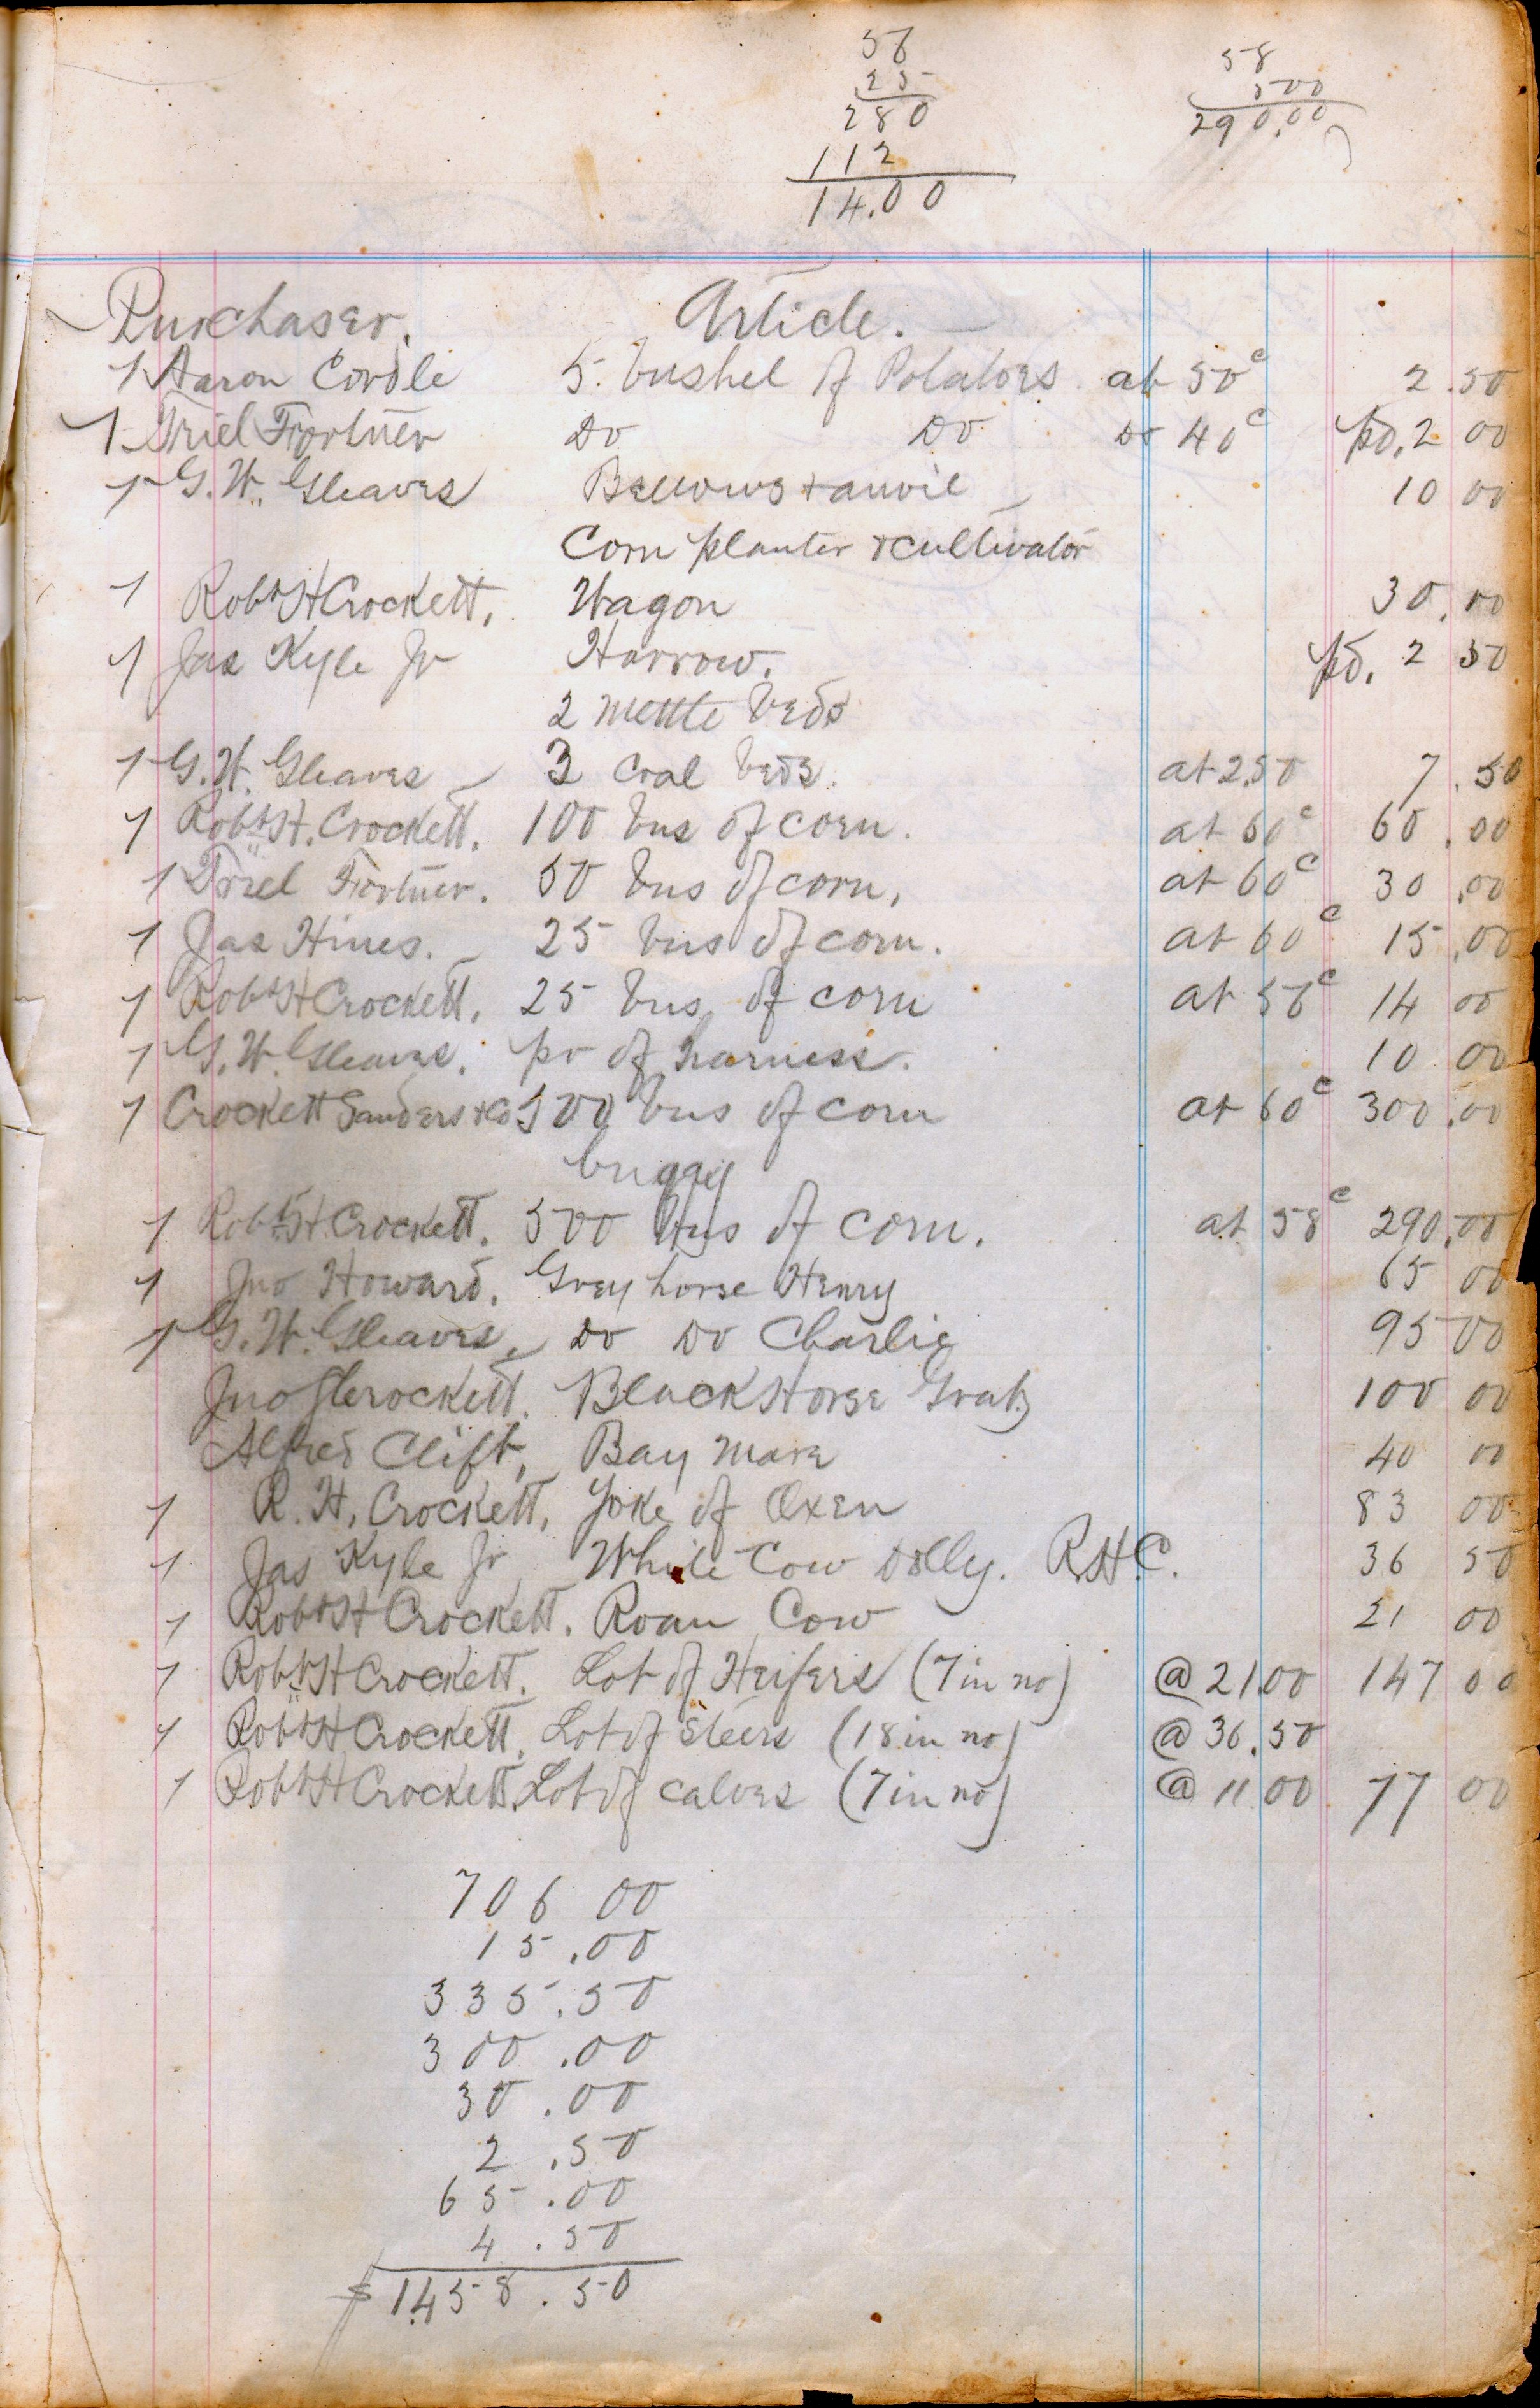 56
25
280
112
14.00
58
500
290.00
Purchaser. Article.
1 Aaron Cordle 5. bushel of Potatoes at 50c 2.50
1 Friel Fortner Do Do Do 40c pd. 2 00
1 G. W. Gleaves Bellows + anvil 10 00
Corn planter + cultivator
1 Robt H Crockett. Wagon 30.00
1 Jas Kyle Jr Harrow. pd. 2 50
2 mettle beds
1 G. W. Gleaves 3 coal beds. at 2.50 7.50
1 Robt H. Crockett. 100 bus of corn. at 60c 60.00
1 Friel Fortner. 50 bus of corn, at 60c 30.00
1 Jas Hines. 25 bus of corn. at 60c 15.00
1 Robt H Crockett. 25 bus of corn at 56c 14 00
1 G. W. Gleaves. pr of harness. 10 00
1 Crockett Sanders & Co 500 bus of corn at 60c 300.00
buggy
1 Robt H Crockett. 500 bus of corn. at 58c 290.00
1 Jno Howard. Gray horse Henry 65 00
1 G. W. Gleaves. Do Do Charlie 95 00
Jno Crockett. Black Horse 100 00
Alfred Clift, Bay mare 40 00
1 R. H. Crockett, Yoke of Oxen 83 00
1 Jas Kyle Jr White Cow Dolly. R.H.C. 36 50
1 Robt H Crockett. Roan Cow 21 00
1 Robt H Crockett. Lot of Heifers (7 in no) @ 21.00 147 00
1 Robt H Crockett. Lot of steers (18 in no) @ 36.50
1 Robt H Crockett. Lot of calves (7 in no) @ 11 00 77 00
706 00
15.00
335.50
300.00
30.00
2.50
65.00
4.50
$1458.50